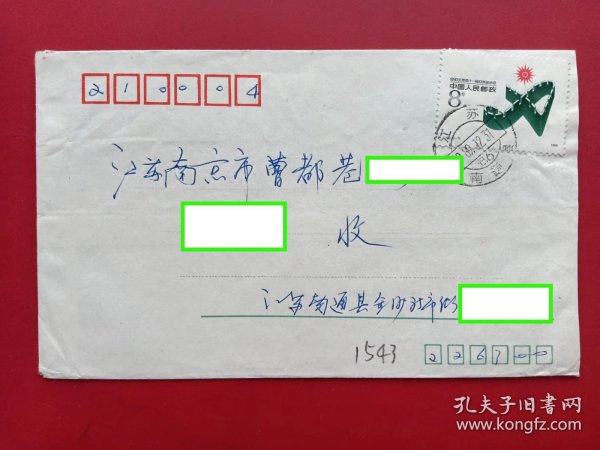 210004
中国人民邮政
8分
江苏
南通
江苏南京市曹都巷
收
江苏南通县金沙镇市街
1543
226300
孔夫子旧书网
www.kongfz.com